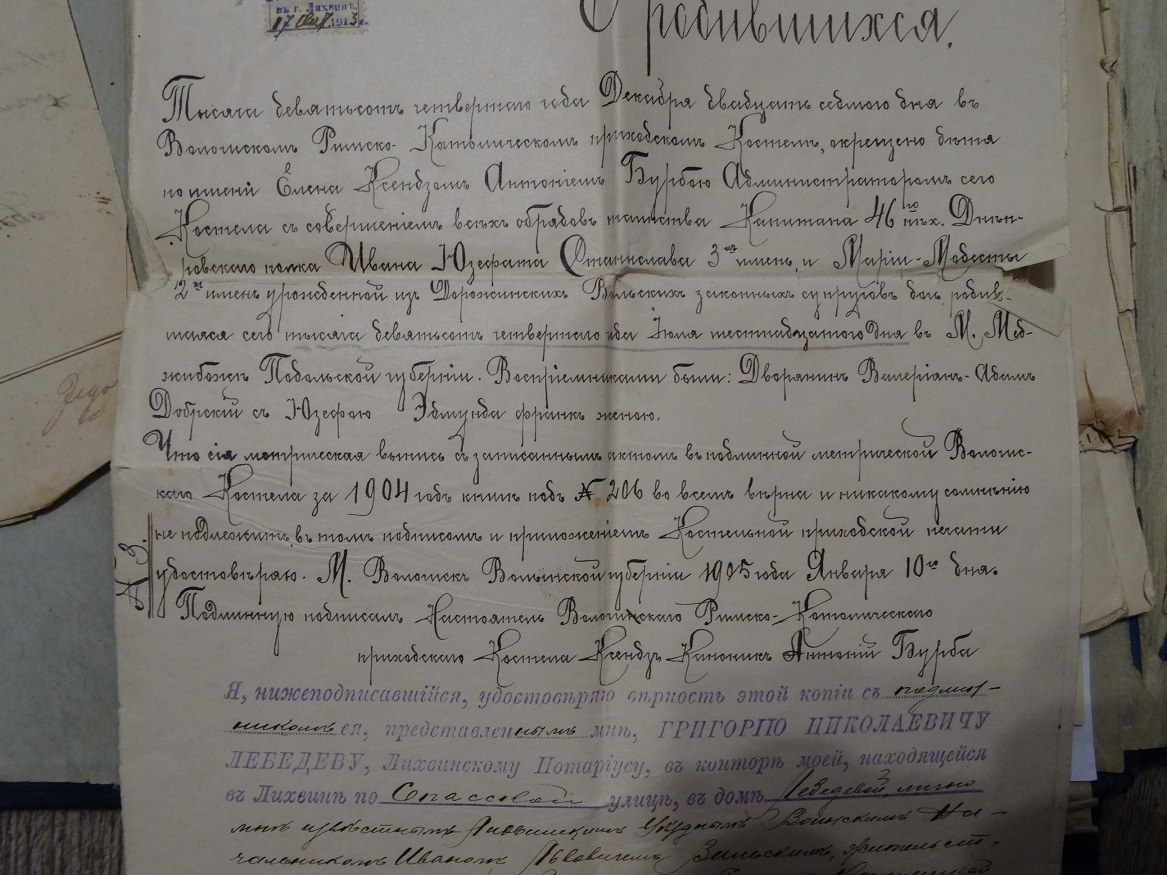 въ г. Лихвинѣ
17 Окт. 1913 г.
О родившихся.
Тысяча девятьсотъ четвертаго года Декабря двадцать седьмого дня въ
Волочискомъ Римско-Католическомъ приходскомъ Костелѣ, окрещено дитя
по имени Елена Ксендзомъ Антоніемъ Бурбою Администраторомъ сего
Костела съ совершеніемъ всѣхъ обрядовъ таинства Капитана 46 го пѣх. Днѣп-
ровскаго полка Ивана Юзефата Станислава 3хъ именъ, и Маріи-Модесты
2хъ именъ урожденной изъ Дорожинскихъ Вильскихъ законныхъ супруговъ дочь, родив-
шаяся сего тысяча девятьсотъ четвертаго года Іюля шестнадцатого дня въ М. Мед-
жибожѣ Подольской губерніи. Воспріемниками были: Дворянинъ Валеріанъ-Адамъ
Добрскій съ Юзефою Эдмунда Франкъ женою.
Что сія метрическая выпись съ записаннымъ актомъ въ подлинной метрической Волочис-
каго Костела за 1904 годъ книгѣ подъ № 206 во всемъ вѣрна и никакому сомнѣнію
не подлежитъ, въ томъ подписомъ и приложеніемъ Костельной приходской печати
удостовѣряю. М. Волочискъ Волынской губерніи 1905 года Января 10го дня.
№ 3.
Подлинную подписалъ Настоятель Волочискаго Римско-Католическаго
приходскаго Костела Ксендзъ Каноникъ Антоній Бурба
Я, нижеподписавшійся, удостовѣряю вѣрность этой копіи съ подлин-
никомъ ея, представленнымъ мнѣ, ГРИГОРІЮ НИКОЛАЕВИЧУ
ЛЕБЕДЕВУ, Лихвинскому Нотаріусу, въ конторѣ моей, находящейся
въ Лихвинѣ по Спасской улицѣ, въ домѣ Лебедевой, лично
мнѣ извѣстнымъ Лихвинскимъ Уѣзднымъ Воинскимъ На-
чальникомъ Иваномъ Львовичемъ Вильскимъ, жительст-